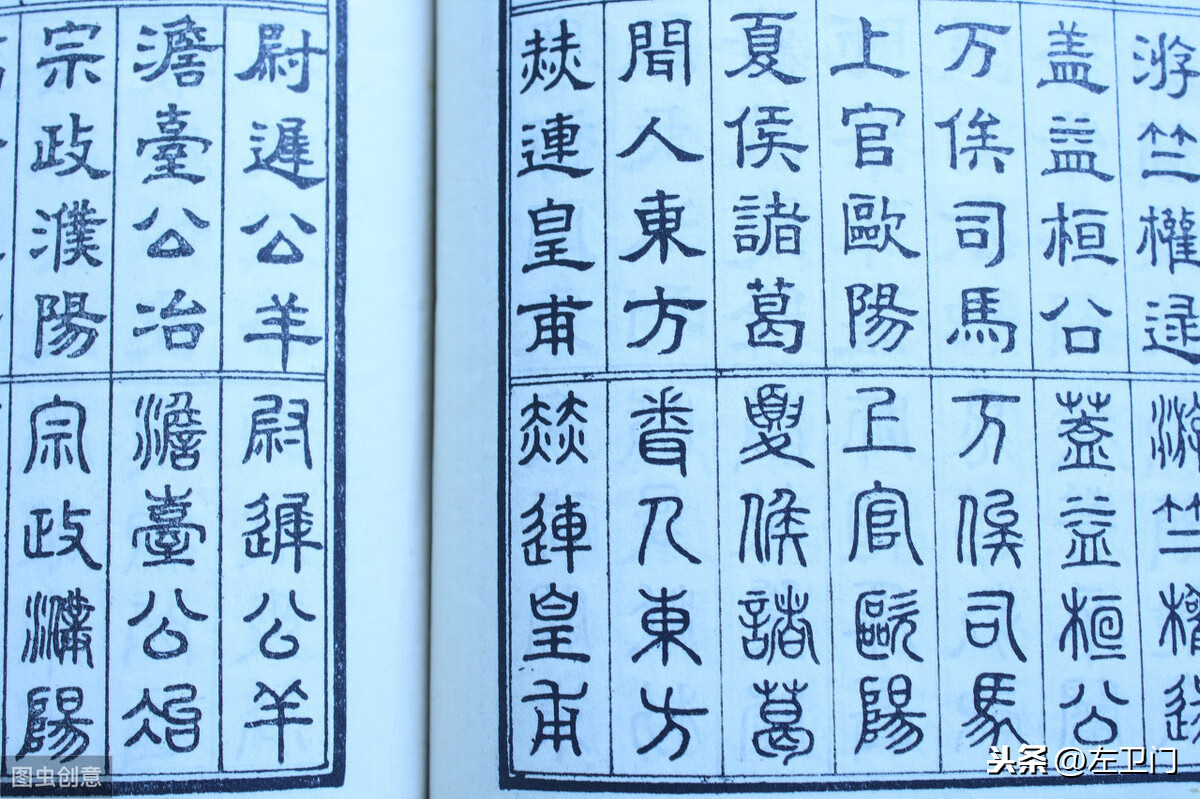 游竺權逯
盖益桓公
万俟司馬
上官歐陽
夏侯諸葛
聞人東方
赫連皇甫
游竺權逯
蓋益桓公
万俟司馬
上官歐陽
夏侯諸葛
聞人東方
赫連皇甫
尉遲公羊
澹臺公冶
宗政濮陽
尉遲公羊
澹臺公冶
宗政濮陽
图虫创意
头条 @左卫门